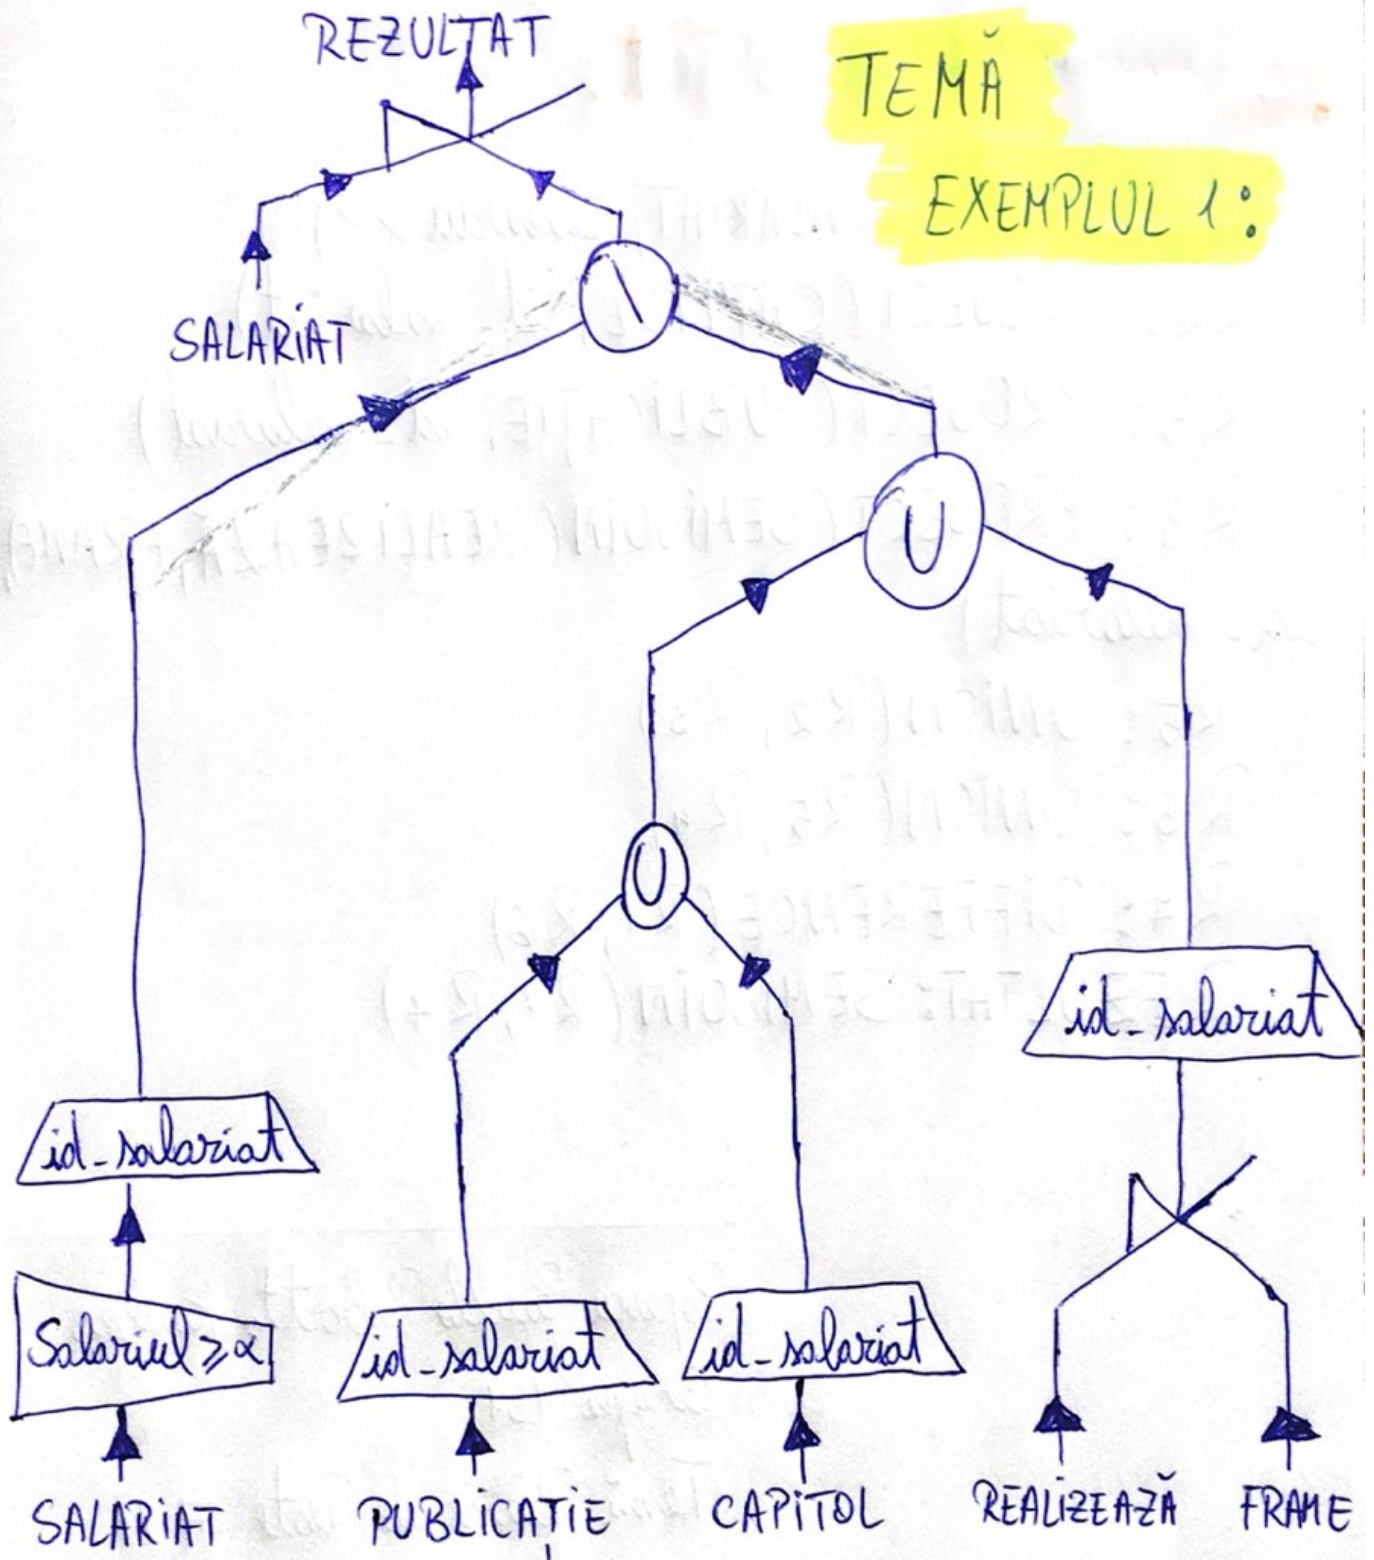 REZULTAT
TEMĂ
EXEMPLUL 1:
SALARIAT
\
U
U
id_salariat
id_salariat
Salariul ≥ α
id_salariat
id_salariat
SALARIAT
PUBLICAȚIE
CAPITOL
REALIZEAZĂ
FRAME